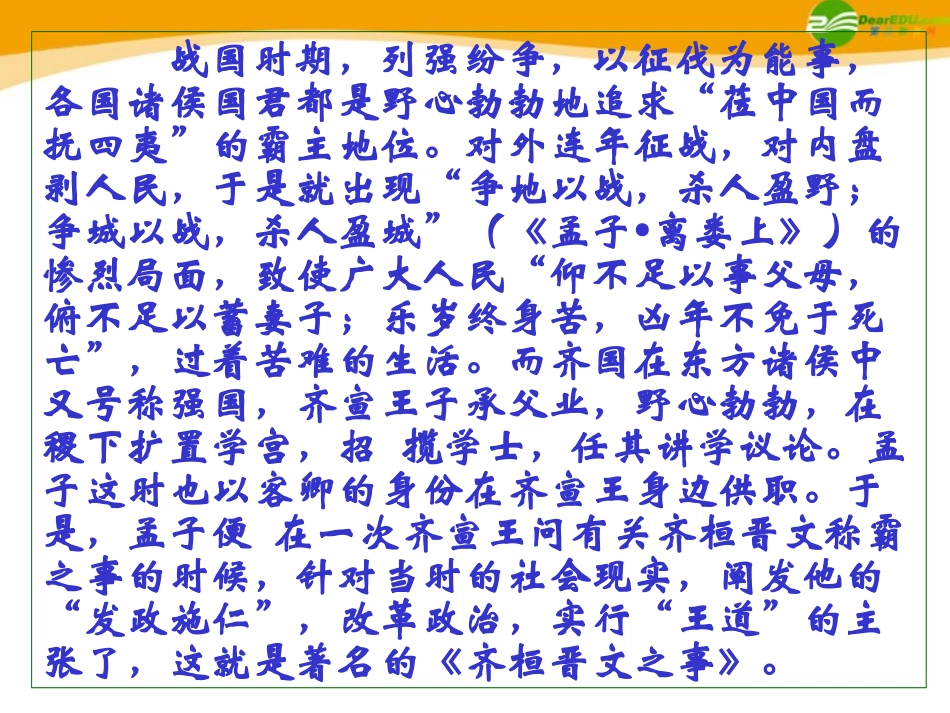 DearEDU.com
战国时期，列强纷争，以征伐为能事，
各国诸侯国君都是野心勃勃地追求“莅中国而
抚四夷”的霸主地位。对外连年征战，对内盘
剥人民，于是就出现“争地以战，杀人盈野；
争城以战，杀人盈城”（《孟子•离娄上》）的
惨烈局面，致使广大人民“仰不足以事父母，
俯不足以蓄妻子；乐岁终身苦，凶年不免于死
亡”，过着苦难的生活。而齐国在东方诸侯中
又号称强国，齐宣王子承父业，野心勃勃，在
稷下扩置学宫，招 揽学士，任其讲学议论。孟
子这时也以客卿的身份在齐宣王身边供职。于
是，孟子便 在一次齐宣王问有关齐桓晋文称霸
之事的时候，针对当时的社会现实，阐发他的
“发政施仁”，改革政治，实行“王道”的主
张了，这就是著名的《齐桓晋文之事》。